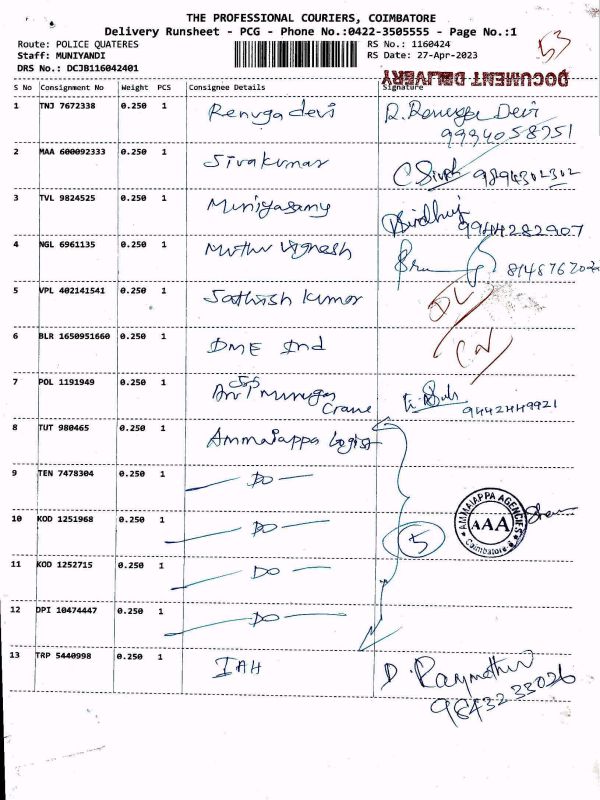 THE PROFESSIONAL COURIERS, COIMBATORE
Delivery Runsheet - PCG - Phone No.:0422-3505555 - Page No.:1
Route: POLICE QUATERES RS No.: 1160424
Staff: MUNIYANDI RS Date: 27-Apr-2023
DRS No.: DCJB116042401
53
DOCUMENT DELIVERY
S No Consignment No Weight PCS Consignee Details Signature
1 TNJ 7672338 0.250 1 Renuga devi R. Renuga Devi
9994058751
2 MAA 600092333 0.250 1 Sivakumar C. 9894302302
3 TVL 9824525 0.250 1 Muniyasamy
9944282907
4 NGL 6961135 0.250 1 Muthu Vignesh
5 VPL 402141541 0.250 1 Sathish Kumar DL
6 BLR 1650951660 0.250 1 DME Ind
7 POL 1191949 0.250 1 Murugan
Crane 9442449921
8 TUT 980465 0.250 1 Ammaiappa Logist
9 TEN 7478304 0.250 1 — DO —
10 KOD 1251968 0.250 1 — DO — 5
AMMAIAPPA AGENCIES
AAA
Coimbatore-6
11 KOD 1252715 0.250 1 — DO —
12 DPI 10474447 0.250 1 — DO —
13 TRP 5440998 0.250 1 IAH D.
9843233026